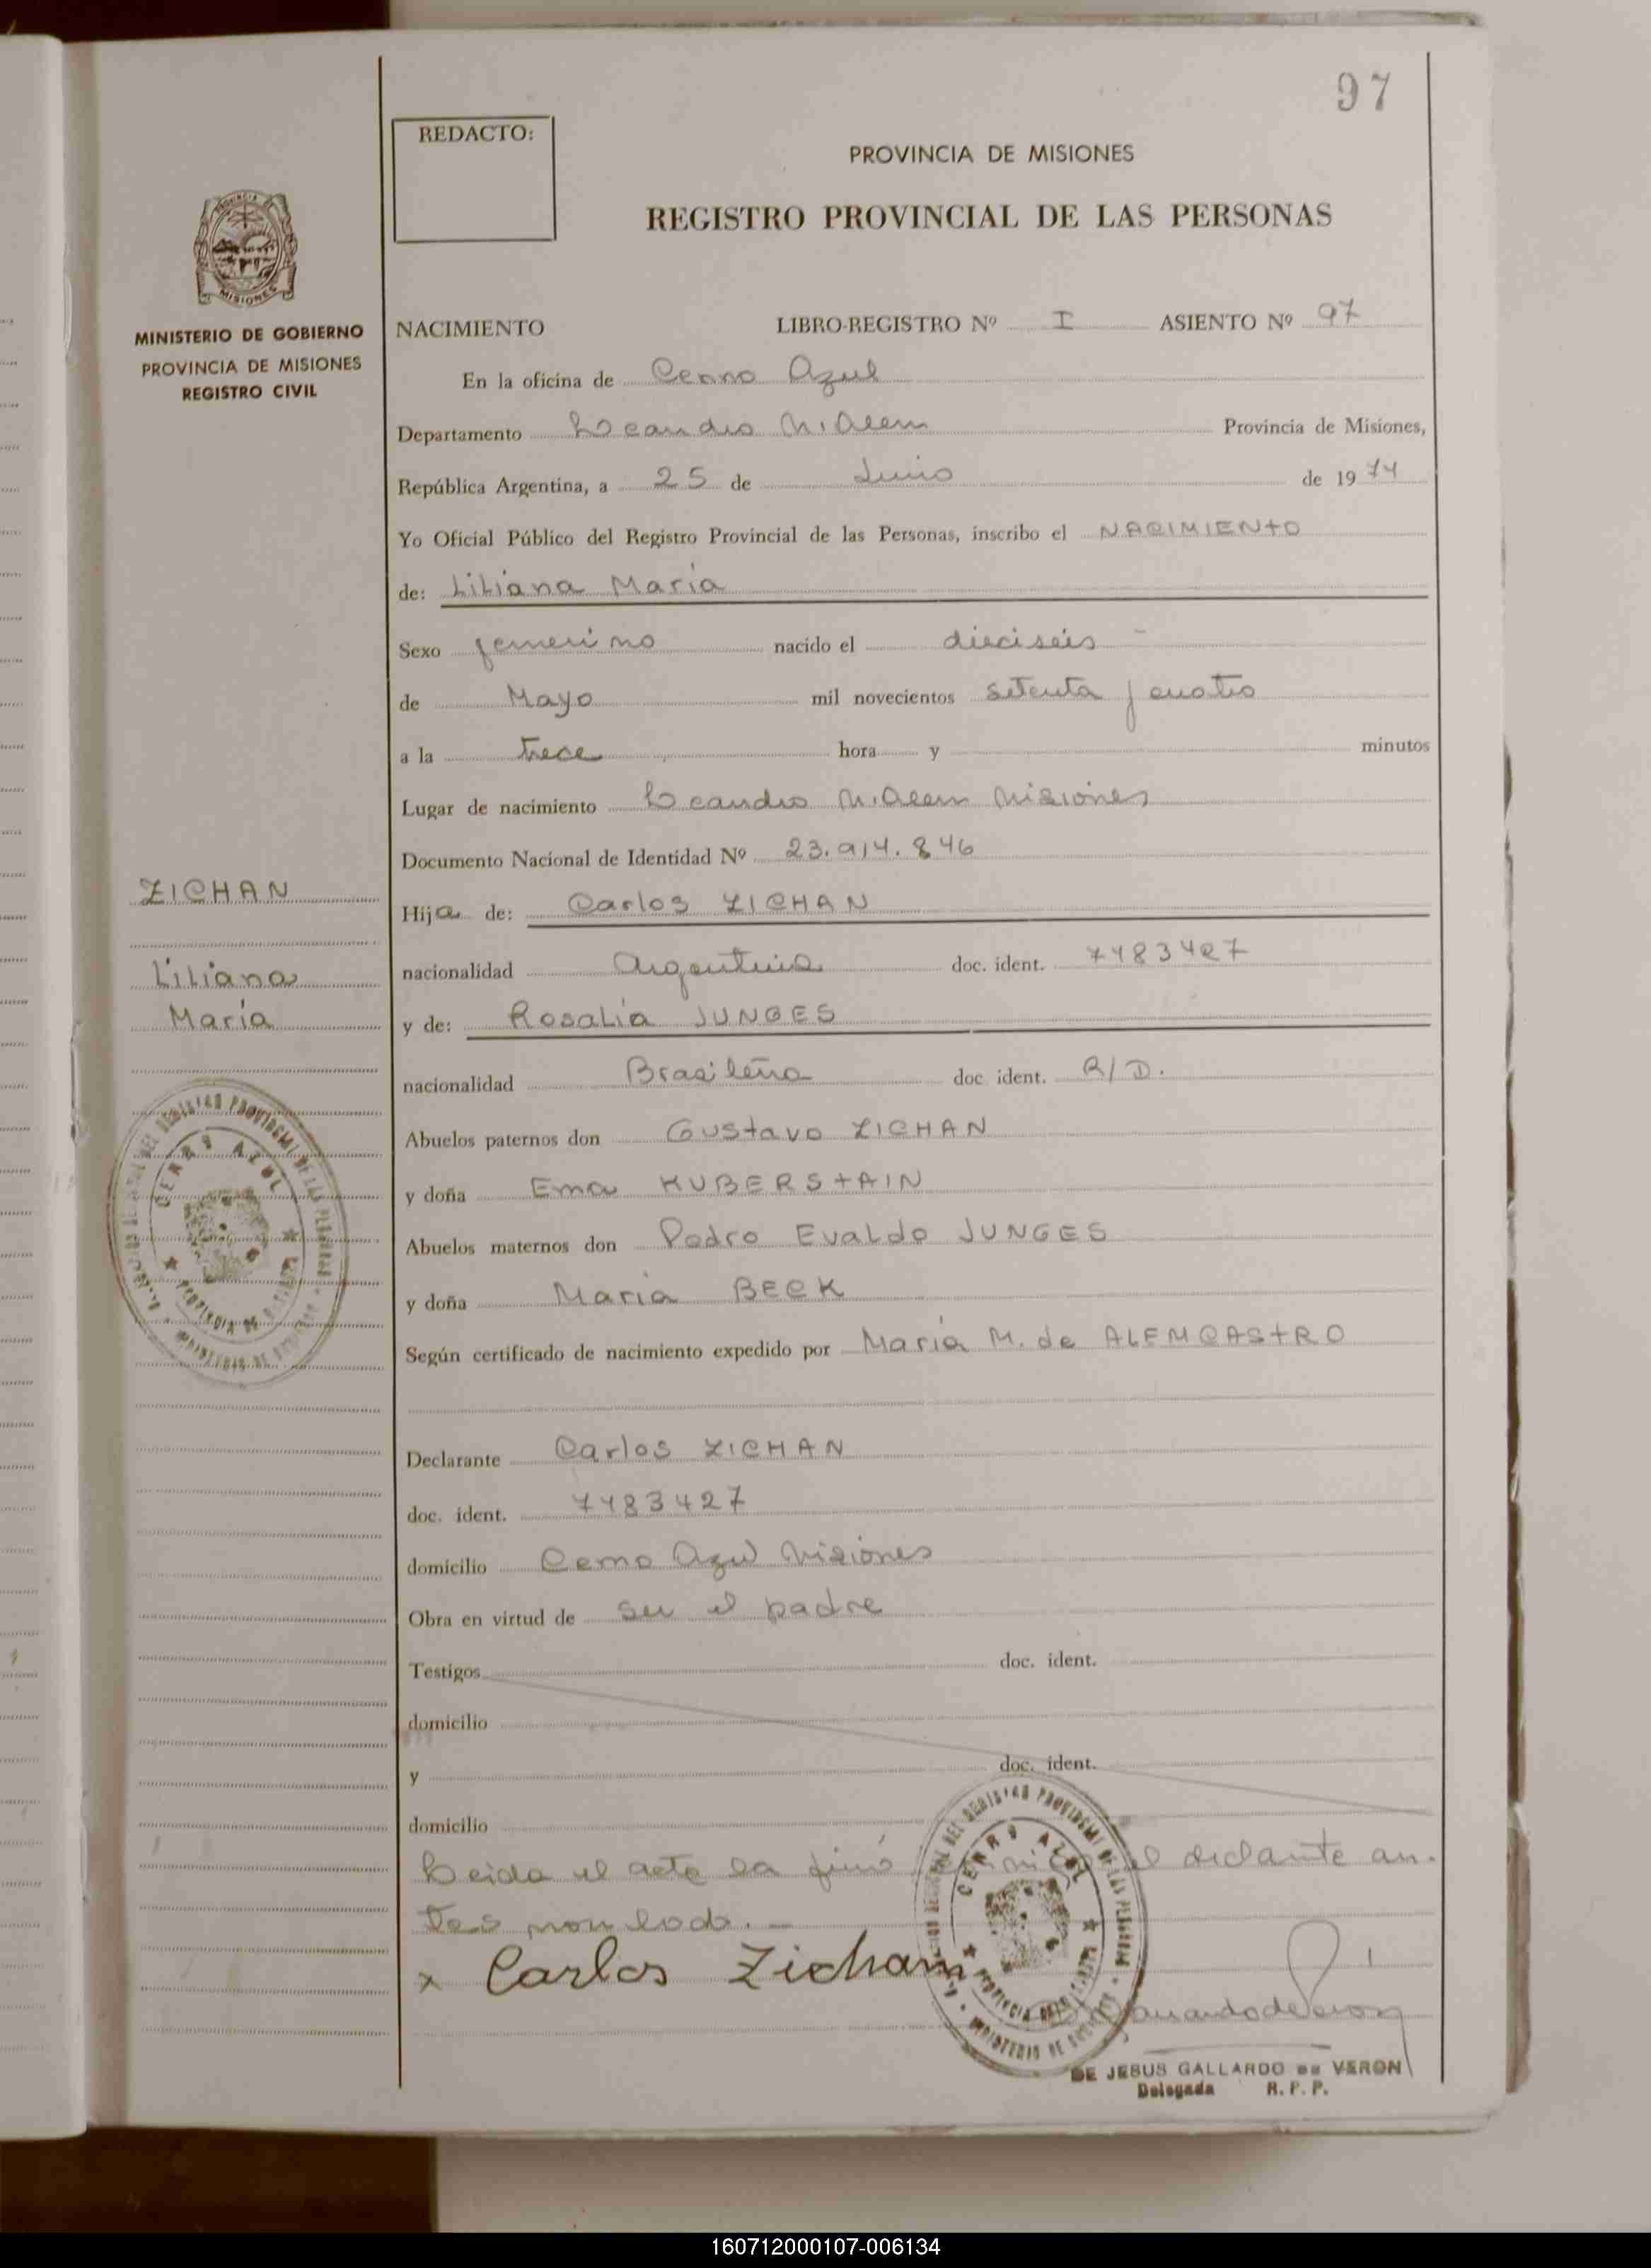 97
REDACTO:
PROVINCIA DE MISIONES
REGISTRO PROVINCIAL DE LAS PERSONAS
MISIONES
MINISTERIO DE GOBIERNO
PROVINCIA DE MISIONES
REGISTRO CIVIL
NACIMIENTO LIBRO-REGISTRO Nº I ASIENTO Nº 97
En la oficina de Cerro Azul
Departamento Leandro N. Alem Provincia de Misiones,
República Argentina, a 25 de Junio de 19 74
Yo Oficial Público del Registro Provincial de las Personas, inscribo el NACIMIENTO
de: Liliana María
Sexo femenino nacido el dieciseis -
de Mayo mil novecientos setenta y cuatro
a la trece hora y minutos
Lugar de nacimiento Leandro N. Alem Misiones
Documento Nacional de Identidad Nº 23.914.846
ZICHAN
Liliana
María
Hija de: Carlos ZICHAN
nacionalidad Argentina doc. ident. 7483427
y de: Rosalia JUNGES
nacionalidad Brasileña doc ident. R/D.
Abuelos paternos don Gustavo ZICHAN
y doña Ema KUBERSTAIN
Abuelos maternos don Pedro Evaldo JUNGES
y doña Maria BECK
Según certificado de nacimiento expedido por María M. de ALEMCASTRO
CERRO AZUL
Declarante Carlos ZICHAN
doc. ident. 7483427
domicilio Cerro Azul Misiones
Obra en virtud de ser el padre
Testigos doc. ident.
domicilio
y doc. ident.
domicilio
Leida el acta la firmó el declante an-
tes nonlado. -
x Carlos Zichan
CERRO AZUL
DE JESUS GALLARDO DE VERON
Delegada R. P. P.
160712000107-006134